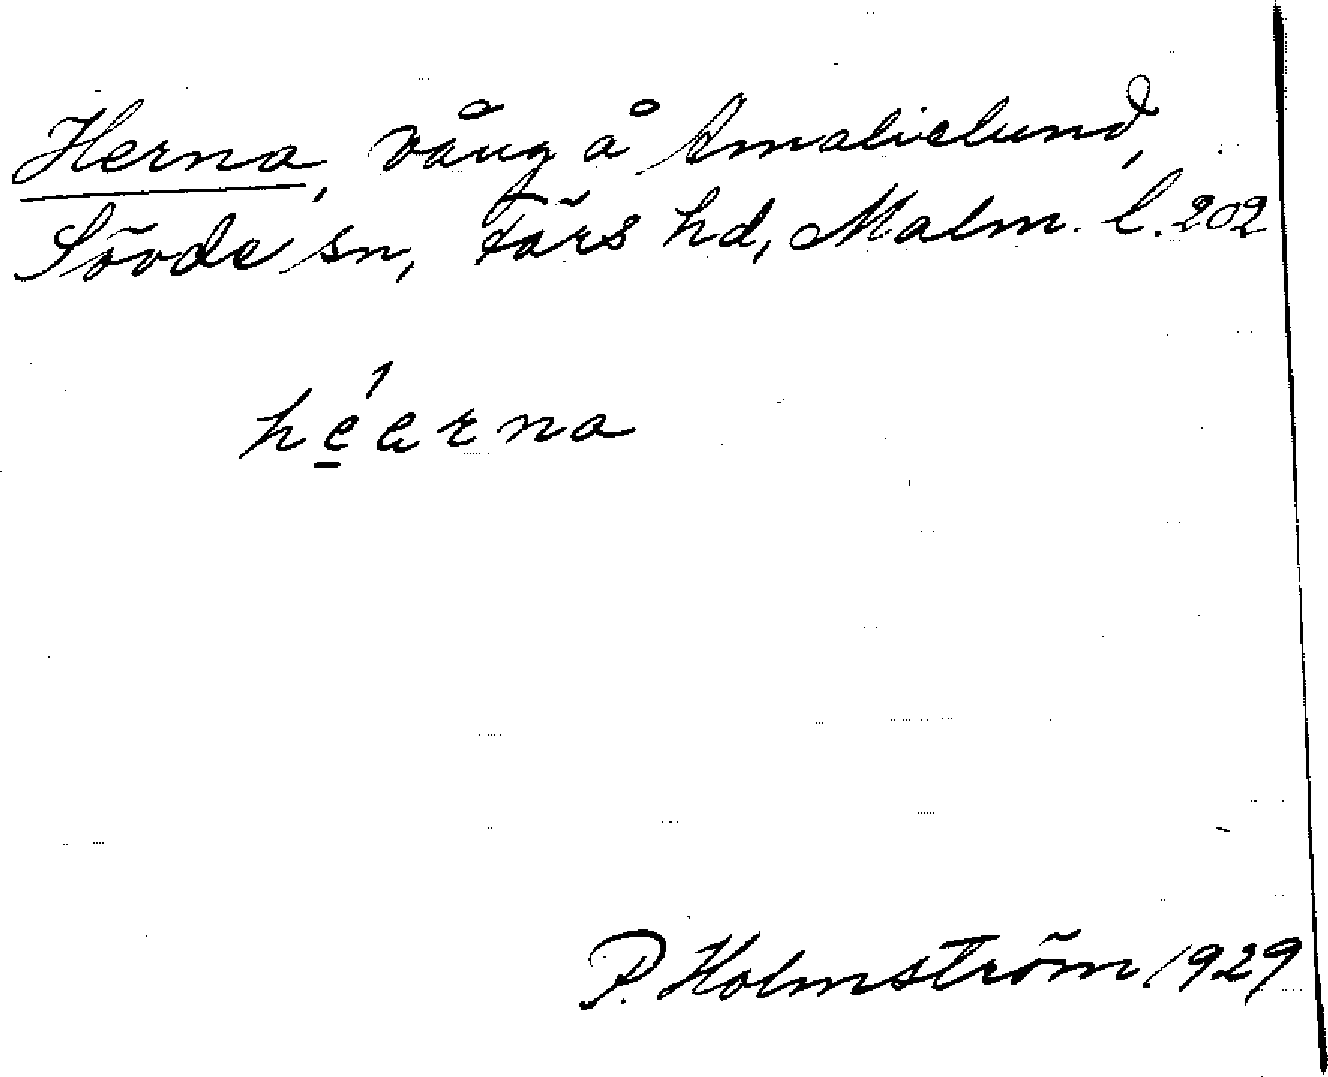 Herna, vång å Amalielund,
Sövde sn, Färs hd, Malm. l. 202
hèarna
P. Holmström 1929